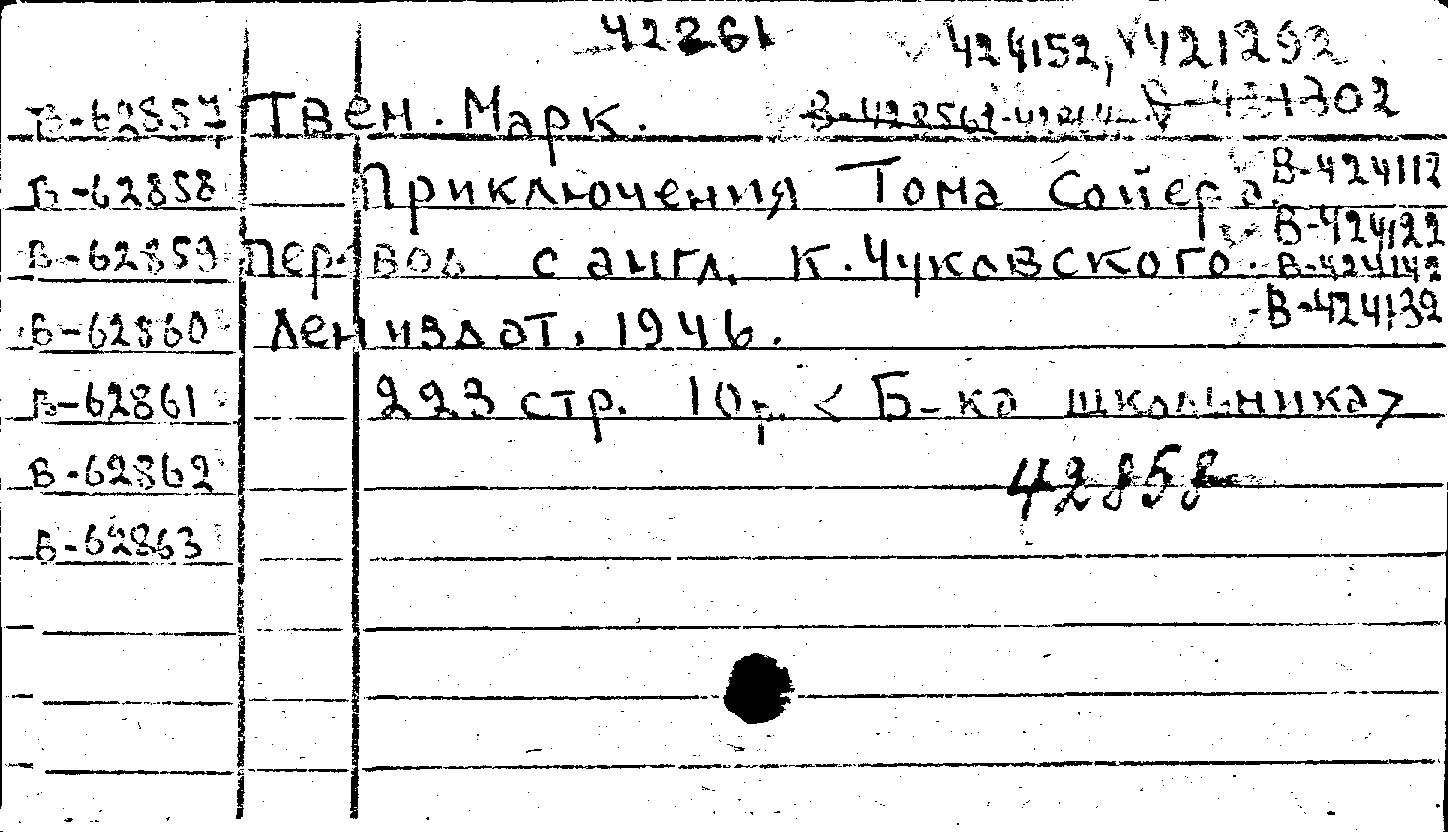 42261
424152, 421292
В-62857 Твен. Марк. 1302
В-62858 Приключения Тома Сойера. В-424112
В-424122
В-62859 перевод с англ. К. Чуковского. В-424142
В-62860 Лениздат. 1946. В-424132
В-62861 223 стр. 10 р. <Б-ка школьника>
В-62862 42858
В-62863